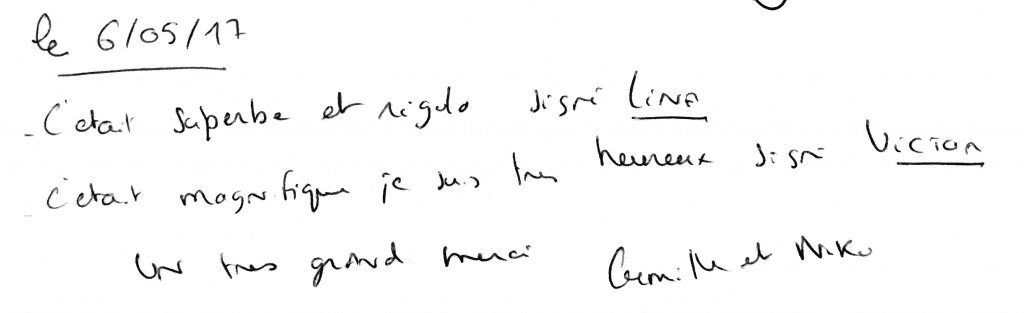 le 6/05/17
- C'etait superbe et rigolo signé LINA
- C'etait magnifique je suis tres heureux signé VICTOR
Un tres grand merci Camille et Niko